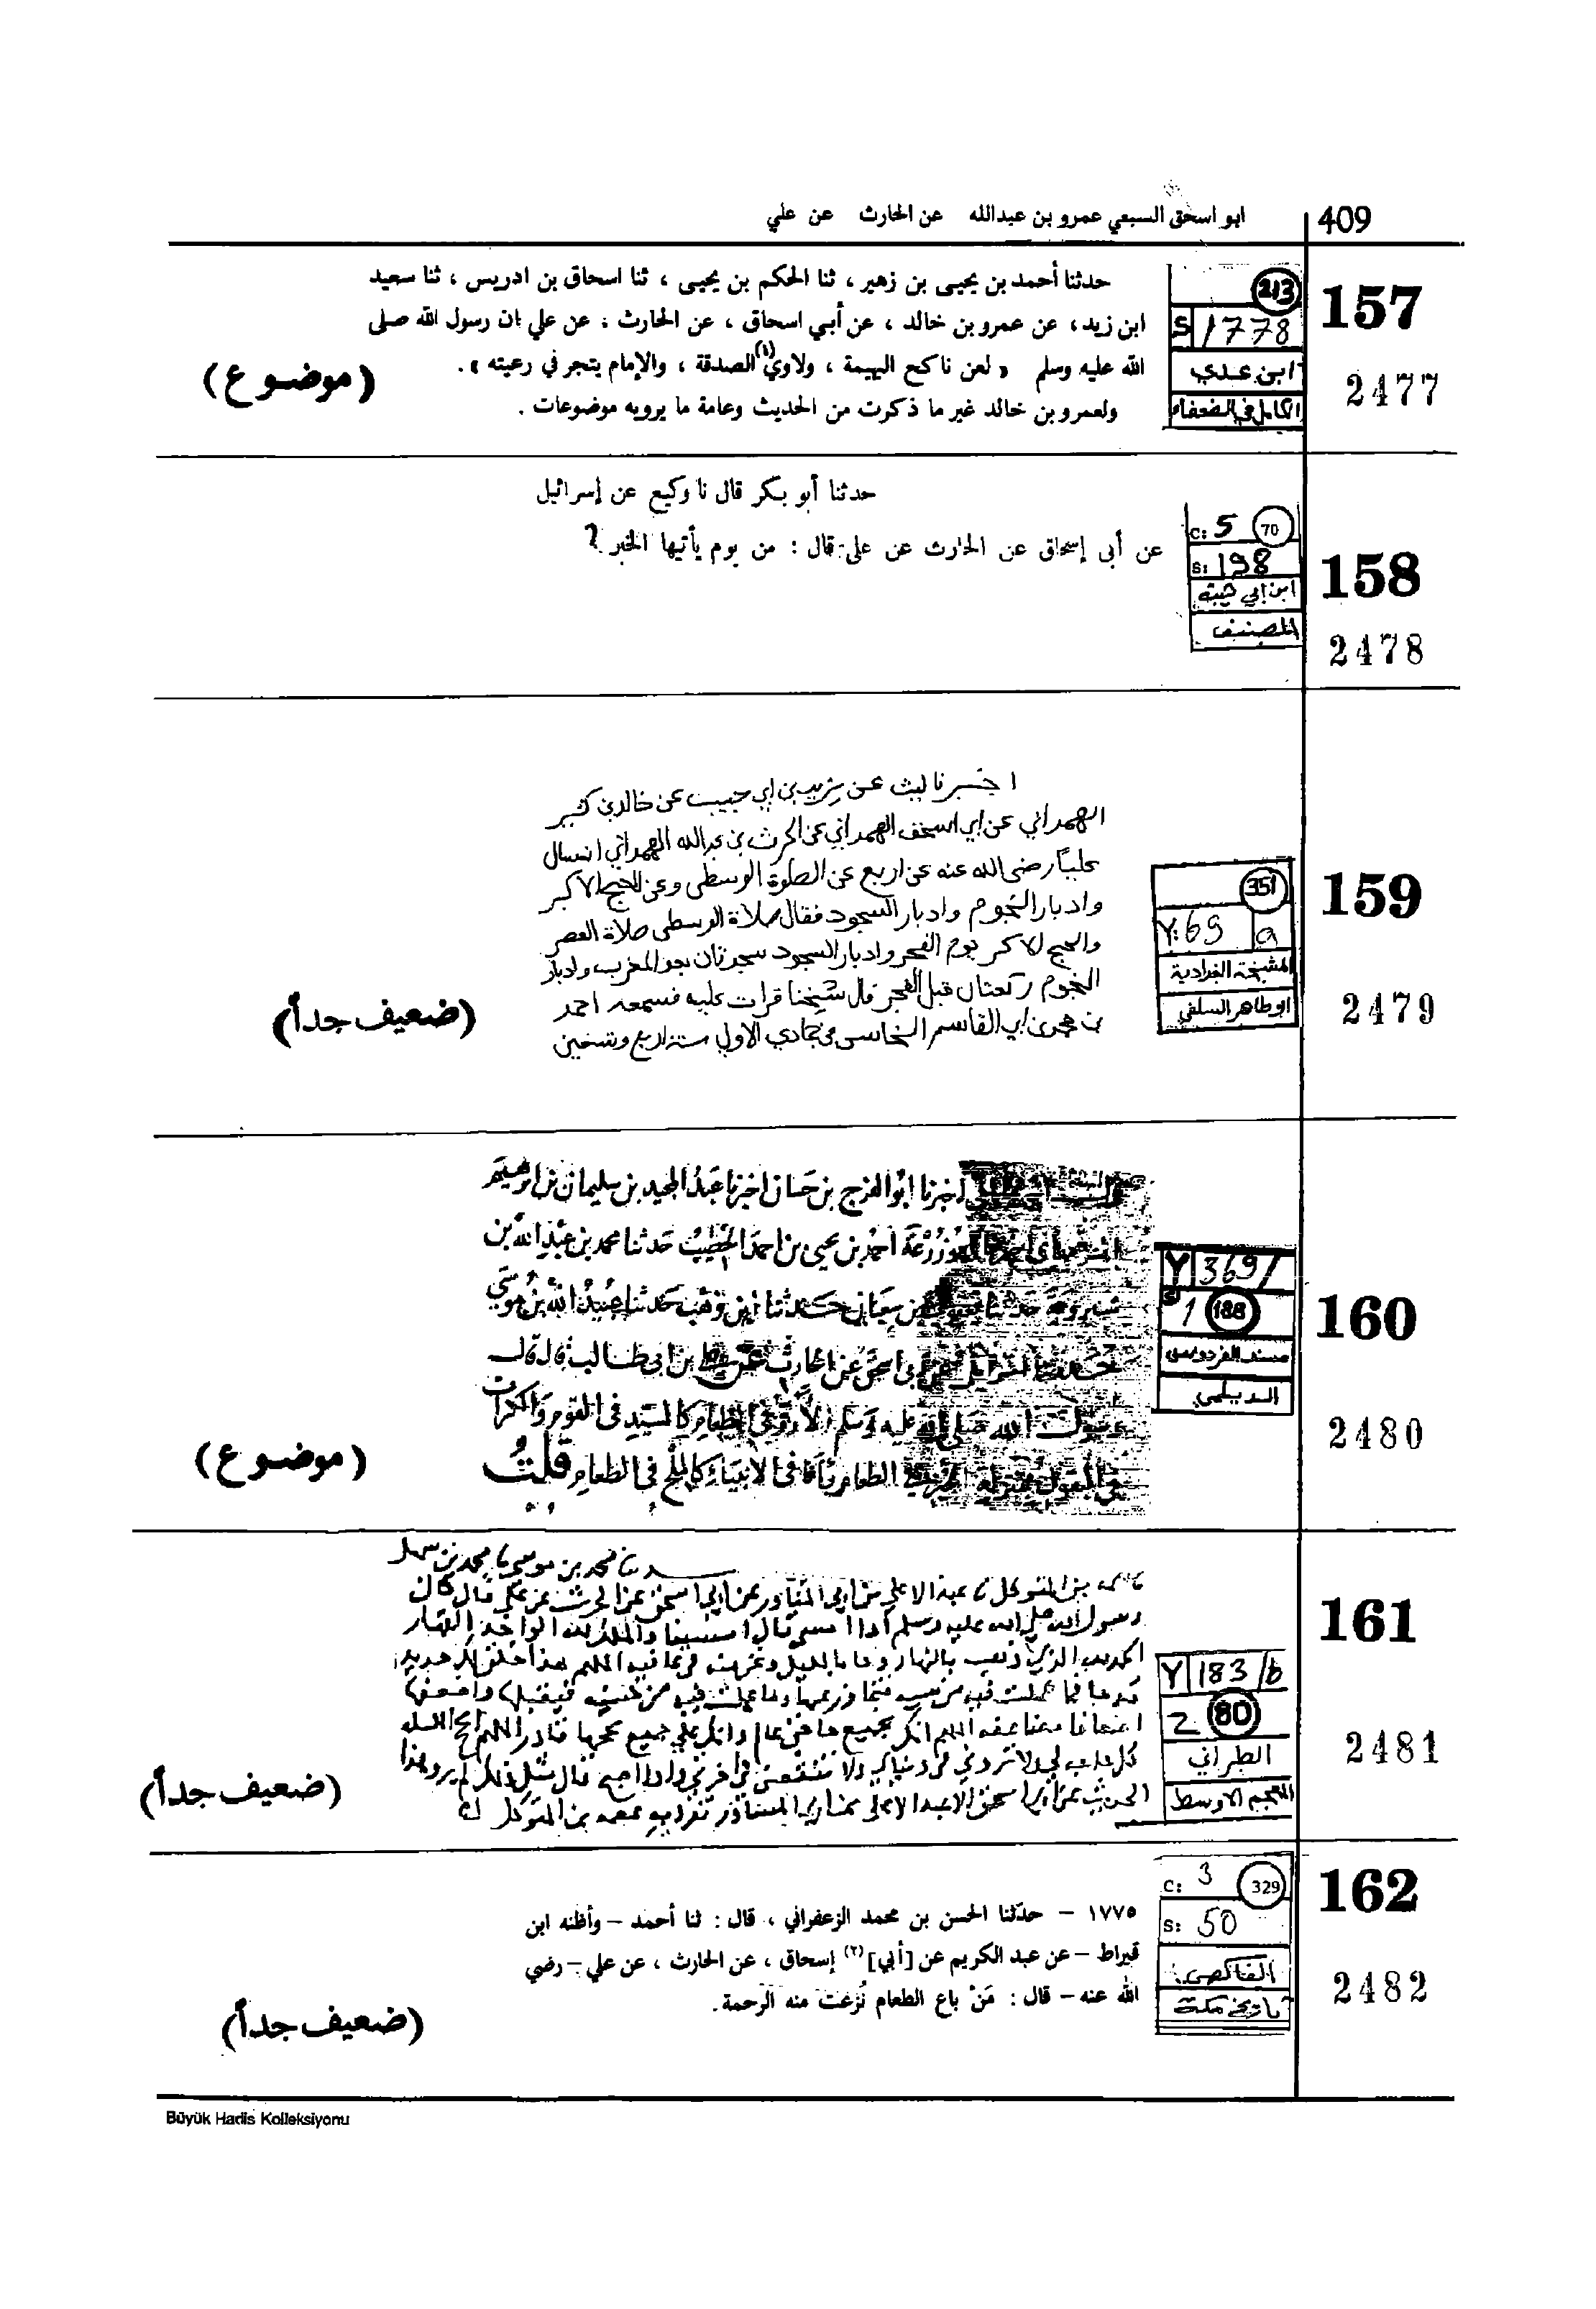 409
ابو اسحق السبعي عمرو بن عبدالله عن الحارث عن علي
157
2477
213
S 1778
ابن عدي
الكامل في الضعفاء
حدثنا أحمد بن يحيى بن زهير ، ثنا الحكم بن يحيى ، ثنا اسحاق بن ادريس ، ثنا سعيد
ابن زيد، عن عمرو بن خالد ، عن أبي اسحاق ، عن الحارث ، عن علي ان رسول الله صلى
الله عليه وسلم « لعن ناكح البهيمة ، ولاوي(١) الصدقة ، والإمام يتجر في رعيته » .
ولعمرو بن خالد غير ما ذكرت من الحديث وعامة ما يرويه موضوعات .
(موضوع)
158
2478
C: 5 70
S: 198
ابن ابي شيبة
المصنف
حدثنا أبو بكر قال نا وكيع عن إسرائيل
عن أبى إسحاق عن الحارث عن على قال : من يوم يأتيها الخبر ?
159
2479
351
Y: 69 a
المشيخة البغدادية
ابو طاهر السلفي
اخبرنا ليث عن يزيد بن ابي حبيب عن خالد بن كثير
الهمداني عن ابي اسحق الهمداني عن الحرث بن عبدالله الهمداني انه سال
علياً رضى الله عنه عن اربع عن الصلوة الوسطى وعن الحج الاكبر
وادبار النجوم وادبار السجود فقال صلاة الوسطى صلاة العصر
والحج الاكبر يوم الفجر وادبار السجود سجدتان بعد المغرب وادبار
النجوم ركعتان قبل الفجر قال شيخنا قرات عليه فسمعه احمد
بن ابي القاسم في جمادي الاولى سنة اربع
(ضعيف جداً)
160
2480
Y 369/
S 1 188
مسند الفردوس
الديلمي
اخبرنا ابو الفرج بن حسان اخبرنا عبد المجيد بن سليمان بن ابرهيم
زرعة احمد بن يحيى بن احمد الخطيب حدثنا محمد بن عبد الله بن
حدثنا ابن وهب حدثنا عبيد الله بن موسى
اسحق عن الحارث عن علي بن ابى طالب قال قال
رسول الله صلى الله عليه وسلم الأرز في الطعام كالسيد في القوم والكراث
في البقول بمنزلة الخبز في الطعام وأنا في الانبياء كالملح في الطعام قلت
(موضوع)
161
2481
Y 183/b
2 80
الطبراني
المعجم الاوسط
حدثنا محمد بن موسى نا محمد بن سهل
بن المتوكل نا عبد الاعلى بن ابي المساور عن ابي اسحق عن الحرث عن علي قال كان
رسول الله صلى الله عليه وسلم اذا امسى قال امسينا والملك لله الواحد القهار
الحمد لله الذي ذهب بالنهار وجا بالليل ونحن في عافية اللهم هذا خلق جديد
قد جا فما عملت فيه من سيئة فتجاوز عنها وما عملت فيه من حسنة فتقبلها واضعفها
اضعافا مضاعفه اللهم انك بجميع حاجتي عالم وانك على جميع نجحها قادر اللهم انجح الليلة
كل حاجة لي ولا تزدني في دنياي ولا تنقصني في اخرتي واذا اصبح قال مثل ذلك لم يرو هذا
الحديث عن ابي اسحق الا عبد الاعلى بن ابي المساور تفرد به محمد بن المتوكل
(ضعيف جداً)
162
2482
C: 3 329
S: 50
الفاكهي
تاريخ مكة
١٧٧٥ – حدّثنا الحسن بن محمد الزعفراني ، قال : ثنا أحمد – وأظنه ابن
قيراط – عن عبد الكريم عن [أبي](٢) إسحاق ، عن الحارث ، عن علي – رضي
الله عنه – قال : مَنْ باع الطعام نُزعت منه الرحمة.
(ضعيف جداً)
Büyük Hadis Kolleksiyonu